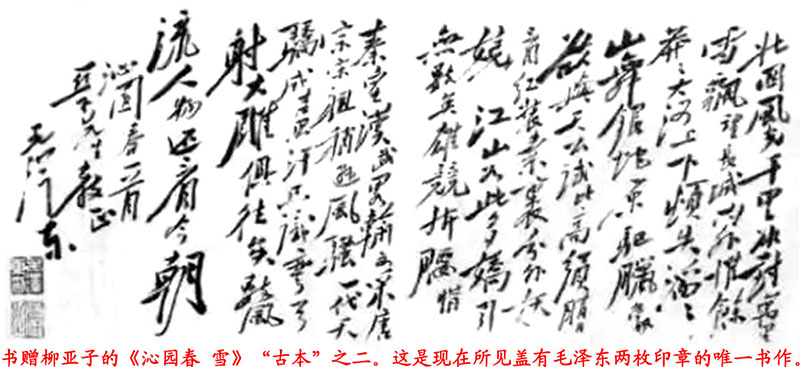 北国風光千里冰封萬里
雪飄望長城内外惟餘
莽々大河上下頓失滔々
山舞銀蛇原驅臘象
欲與天公試比高須晴
日看红装素裹分外妖
娆 江山如此多嬌引
無數英雄競折腰惜
秦皇漢武略輸文采唐
宗宋祖稍遜風騷一代天
驕成吉思汗只識彎弓
射大雕俱往矣數風
流人物还看今朝
沁园春一首
亚子先生教正
毛泽东
书赠柳亚子的《沁园春 雪》“古本”之二。这是现在所见盖有毛泽东两枚印章的唯一书作。